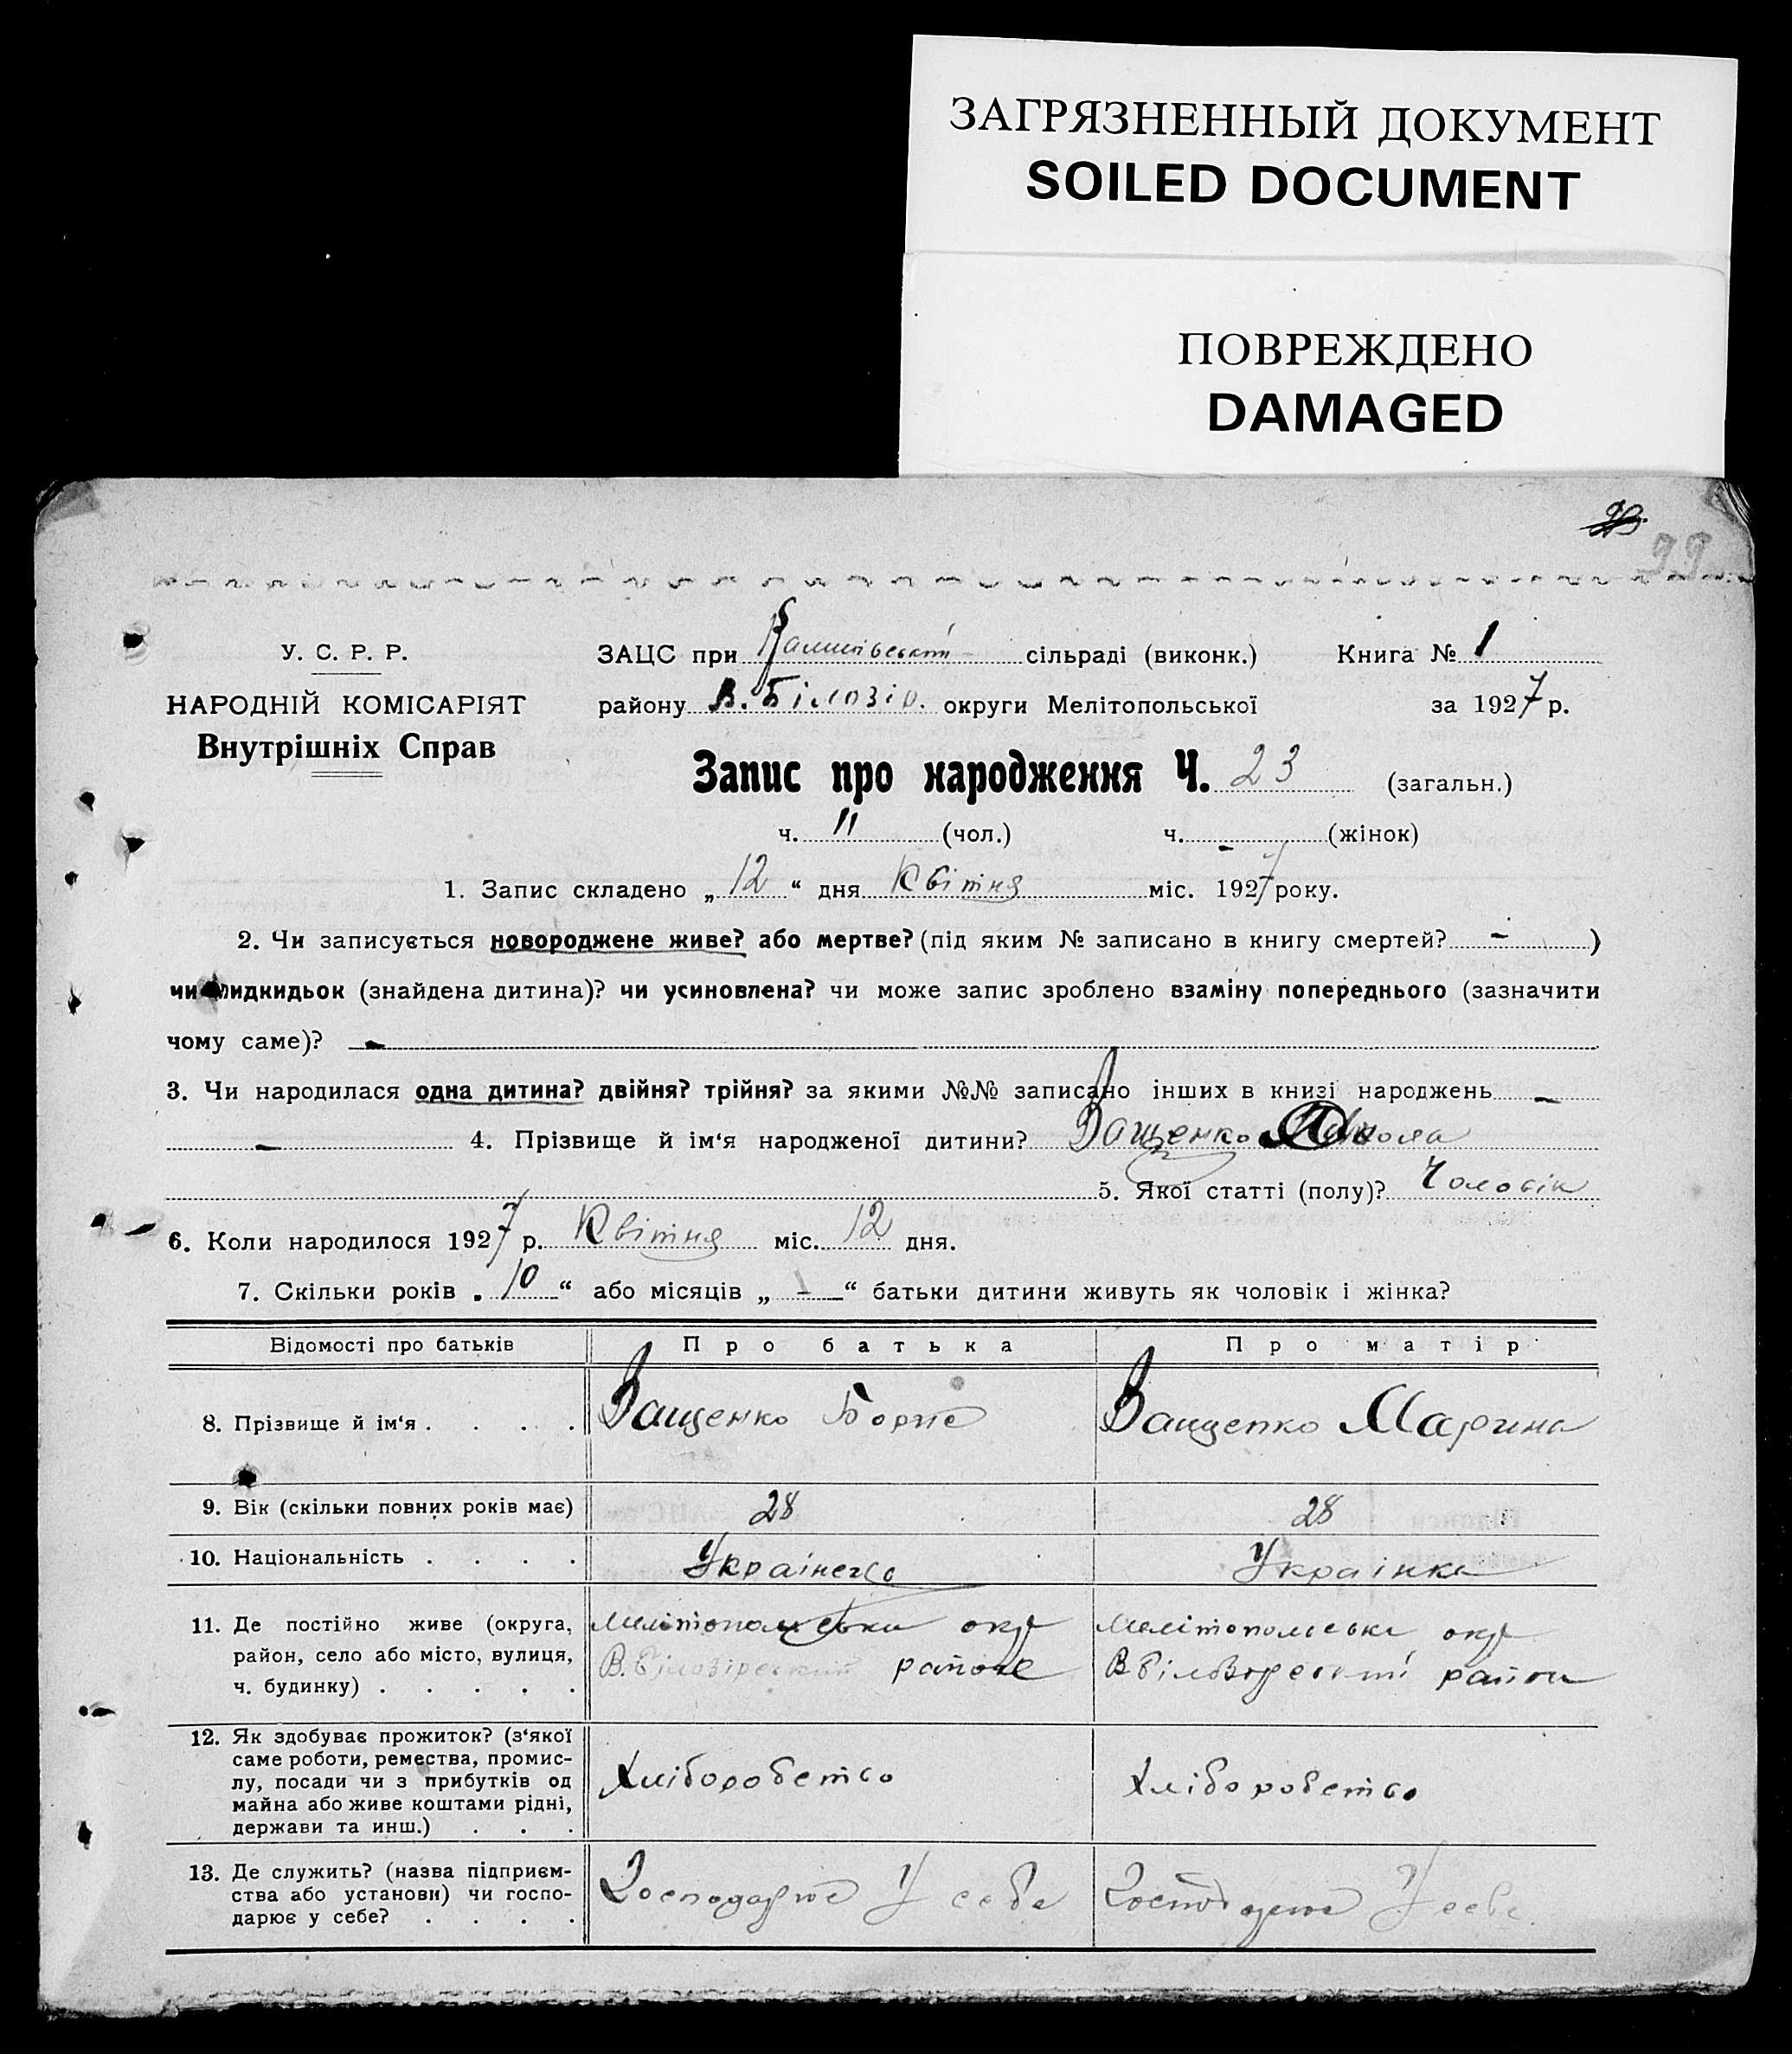 ЗАГРЯЗНЕННЫЙ ДОКУМЕНТ
SOILED DOCUMENT
ПОВРЕЖДЕНО
DAMAGED
99
У. С. Р. Р.
НАРОДНІЙ КОМІСАРІЯТ
Внутрішніх Справ
ЗАЦС при сільраді (виконк.) Книга № 1
району В. Білозір. округи Мелітопольської за 1927 р.
Запис про народження Ч. 23 (загальн.)
ч. 11 (чол.) ч. - (жінок)
1. Запис складено „12“ дня Квітня міс. 1927 року.
2. Чи записується новороджене живе? або мертве? (під яким № записано в книгу смертей? - )
чи підкидьок (знайдена дитина)? чи усиновлена? чи може запис зроблено взаміну попереднього (зазначити
чому саме)? -
3. Чи народилася одна дитина? двійня? трійня? за якими №№ записано інших в книзі народжень -
- 4. Прізвище й ім‘я народженої дитини? Ващенко Микола
5. Якої статті (полу)? Чоловік
6. Коли народилося 1927 р. Квітня міс. 12 дня.
7. Скільки років „10“ або місяців „-“ батьки дитини живуть як чоловік і жінка?
Відомості про батьків Про батька Про матір
8. Прізвище й ім‘я . . . . Ващенко Борис Ващенко Марина
9. Вік (скільки повних років має) 28 28
10. Національність . . . . Українець Українка
11. Де постійно живе (округа,
район, село або місто, вулиця,
ч. будинку) . . . . .
Мелітопольська окр
В. Білозірський районе
Мелітопольська окр
В Білозірський район
12. Як здобуває прожиток? (з‘якої
саме роботи, ремества, промис-
лу, посади чи з прибутків од
майна або живе коштами рідні,
держави та инш.) . . .
Хліборобство
Хліборобство
13. Де служить? (назва підприєм-
ства або установи) чи госпо-
дарює у себе? . . . .
Господарює У себе
Господарює У себе